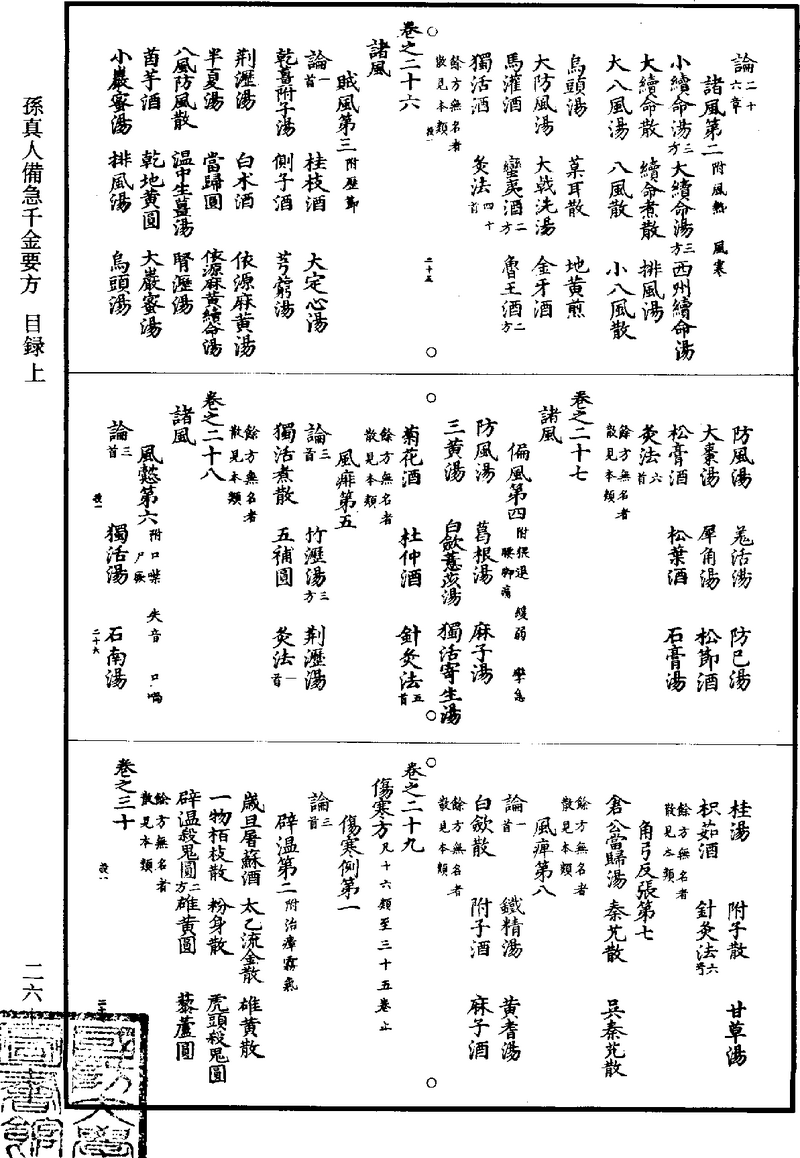 論二十六章
諸風第二附風熱 風寒
小續命湯三方 大續命湯三方 西州續命湯
大續命散 續命煮散 排風湯
大八風湯 八風散 小八風散
烏頭湯 菜耳散 地黃煎
大防風湯 大戟洗湯 金牙酒
馬灌酒 蠻夷酒二方 魯王酒二方
獨活酒 灸法四十首
餘方無名者散見本類
卷之二十六
諸風
賊風第三附歷節
論一首 桂枝酒 大定心湯
乾薑附子湯 側子酒 芎藭湯
荆瀝湯 白术酒 依源麻黃湯
半夏湯 當歸圓 依源麻黃續命湯
八風防風散 溫中生薑湯 腎瀝湯
茵芋酒 乾地黃圓 大巖蜜湯
小巖蜜湯 排風湯 烏頭湯
防風湯 羗活湯 防巳湯
大棗湯 犀角湯 松節酒
松膏酒 松葉酒 石膏湯
灸法六首
餘方無名者散見本類
卷之二十七
諸風
偏風第四附猥退 緩弱 攣急 腰脚痛
防風湯 葛根湯 麻子湯
三黃湯 白歛薏苡湯 獨活寄生湯
菊花酒 杜仲酒 針灸法五首
餘方無名者散見本類
風痱第五
論三首 竹瀝湯三方 荆瀝湯
獨活煮散 五補圓 灸法一首
餘方無名者散見本類
卷之二十八
諸風
風懿第六附口噤 失音 口喎 尸厥
論三首 獨活湯 石南湯
桂湯 附子散 甘草湯
枳茹酒 針灸法六首
餘方無名者散見本類
角弓反張第七
倉公當歸湯 秦艽散 吳秦艽散
餘方無名者散見本類
風痺第八
論一首 鐵精湯 黃耆湯
白歛散 附子酒 麻子酒
餘方無名者散見本類
卷之二十九
傷寒方凡十六類至三十五卷止
傷寒例第一
論三首
辟溫第二附治瘴霧氣
歲旦屠蘇酒 太乙流金散 雄黃散
一物栢枝散 粉身散 虎頭殺鬼圓
辟溫殺鬼圓二方 雄黃圓 藜蘆圓
餘方無名者散見本類
卷之三十
孫真人備急千金要方 目録上
二六